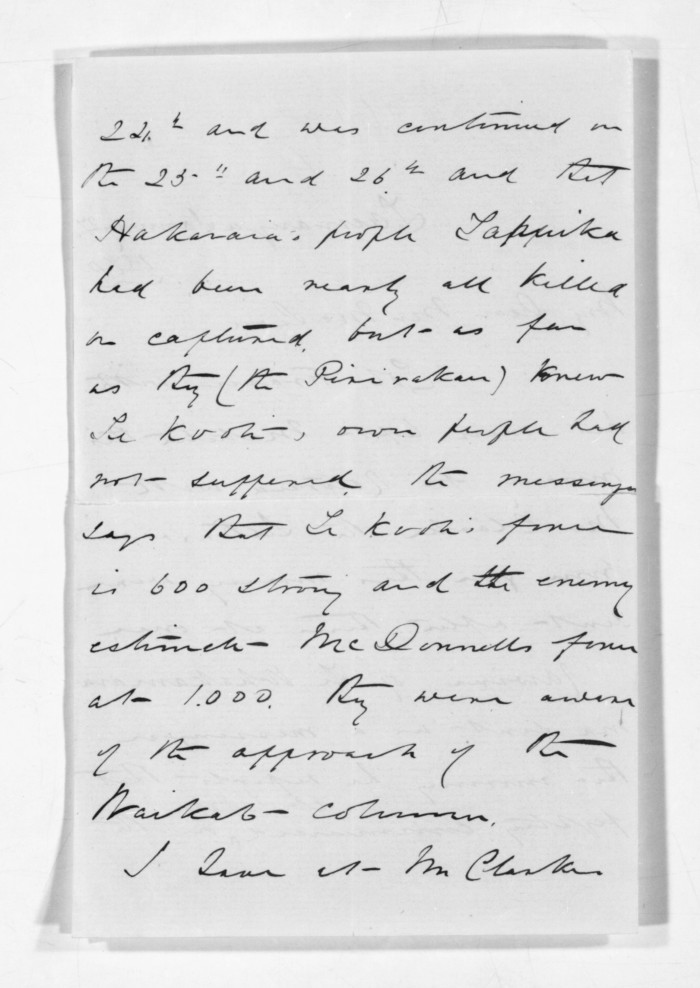 24th and was continued on
the 25th and 26th and that
Hakaraia's people Tapuika
had been nearly all killed
or captured, but as far
as they (the Pirirakau) knew
Te Kooti's own people had
not suffered. the messenger
says that Te Kooti's force
is 600 strong and the enemy
estimate McDonnells force
at 1.000. They were aware
of the approach of the
Waikato column.
I leave at Mr Clarkes